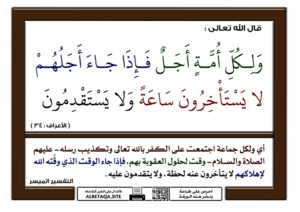 قال الله تعالى :
وَلِكُلِّ أُمَّةٍ أَجَلٌ فَإِذَا جَاءَ أَجَلُهُمْ
لَا يَسْتَأْخِرُونَ سَاعَةً وَلَا يَسْتَقْدِمُونَ
( الأعراف : ٣٤ )
أي ولكل جماعة اجتمعت على الكفر بالله تعالى وتكذيب رسله - عليهم
الصلاة والسلام - وقت لحلول العقوبة بهم، فإذا جاء الوقت الذي وقَّته الله
لإهلاكهم لا يتأخرون عنه لحظة، ولا يتقدمون عليه.
التفسير الميسر
ALBETAQA.SITE